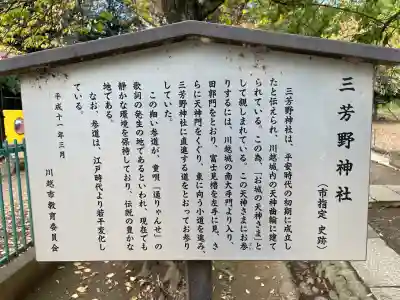 三芳野神社
（市指定　史跡）
三芳野神社は、平安時代の初期に成立し
たと伝えられ、川越城内の天神曲輪に建て
られている。この為、「お城の天神さま」と
して親しまれている。この天神さまにお参
りするには、川越城の南大手門より入り、
田郭門をとおり、富士見櫓を左手に見、さ
らに天神門をくぐり、東に向う小道を進み、
三芳野神社に直進する道をとおってお参り
していた。
この細い参道が、童唄「通りゃんせ」の
歌詞の発生の地であるといわれ、現在でも
静かな環境を保持しており、伝説の豊かな
地である。
なお、参道は、江戸時代より若干変化し
ている。
平成十一年三月
川越市教育委員会